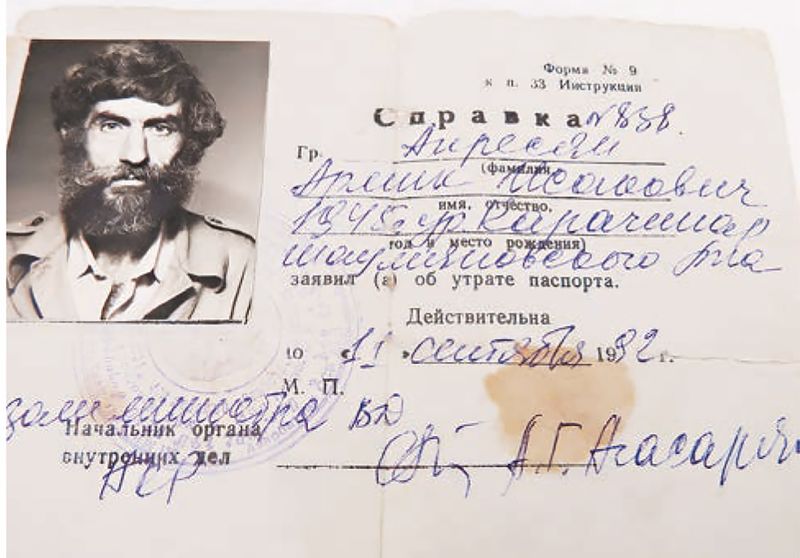 Форма № 9
к п. 33 Инструкции
Справка № 838.
Гр. Апресян
(фамилия,
Армик
имя, отчество,
г.р. Карачинар
год и место рождения)
Шаумяновского р-на
заявил (а) об утрате паспорта.
Действительна
до «11» сентября 1992 г.
М. П.
зам. министра ВД
Начальник органа
внутренних дел
НКР А.Г. Агасарян